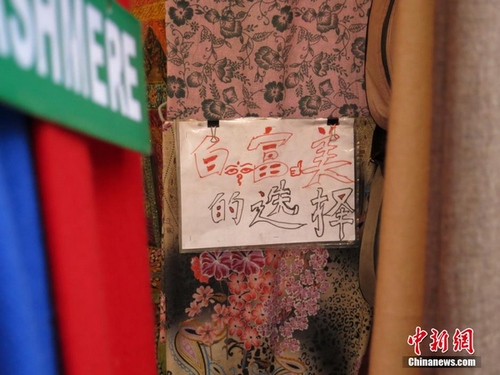 SHMERE
白富美
的选择
中新网
Chinanews.com